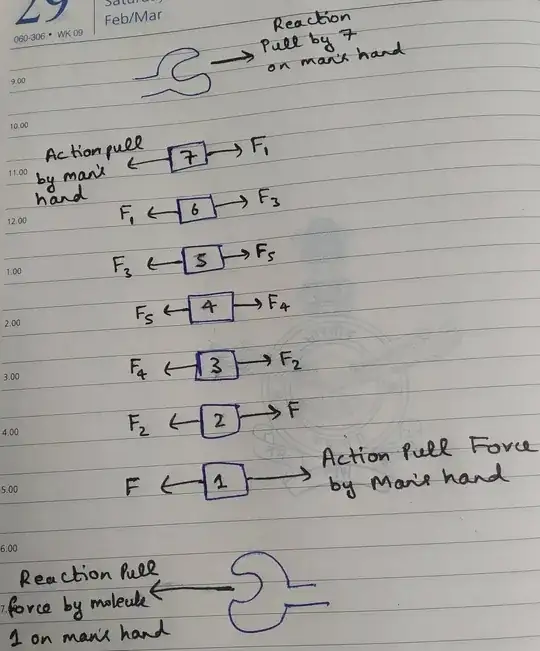 29
Saturday
Feb/Mar
060-306 • WK 09
Reaction
Pull by 7
on man's hand
9.00
10.00
Action pull
by man's
hand
7
F₁
11.00
F₁
6
F₃
12.00
F₃
5
F₅
1.00
F₅
4
F₄
2.00
F₄
3
F₂
3.00
F₂
2
F
4.00
F
1
Action Pull Force
by Man's hand
5.00
6.00
Reaction Pull
force by molecule
1 on man's hand
7.